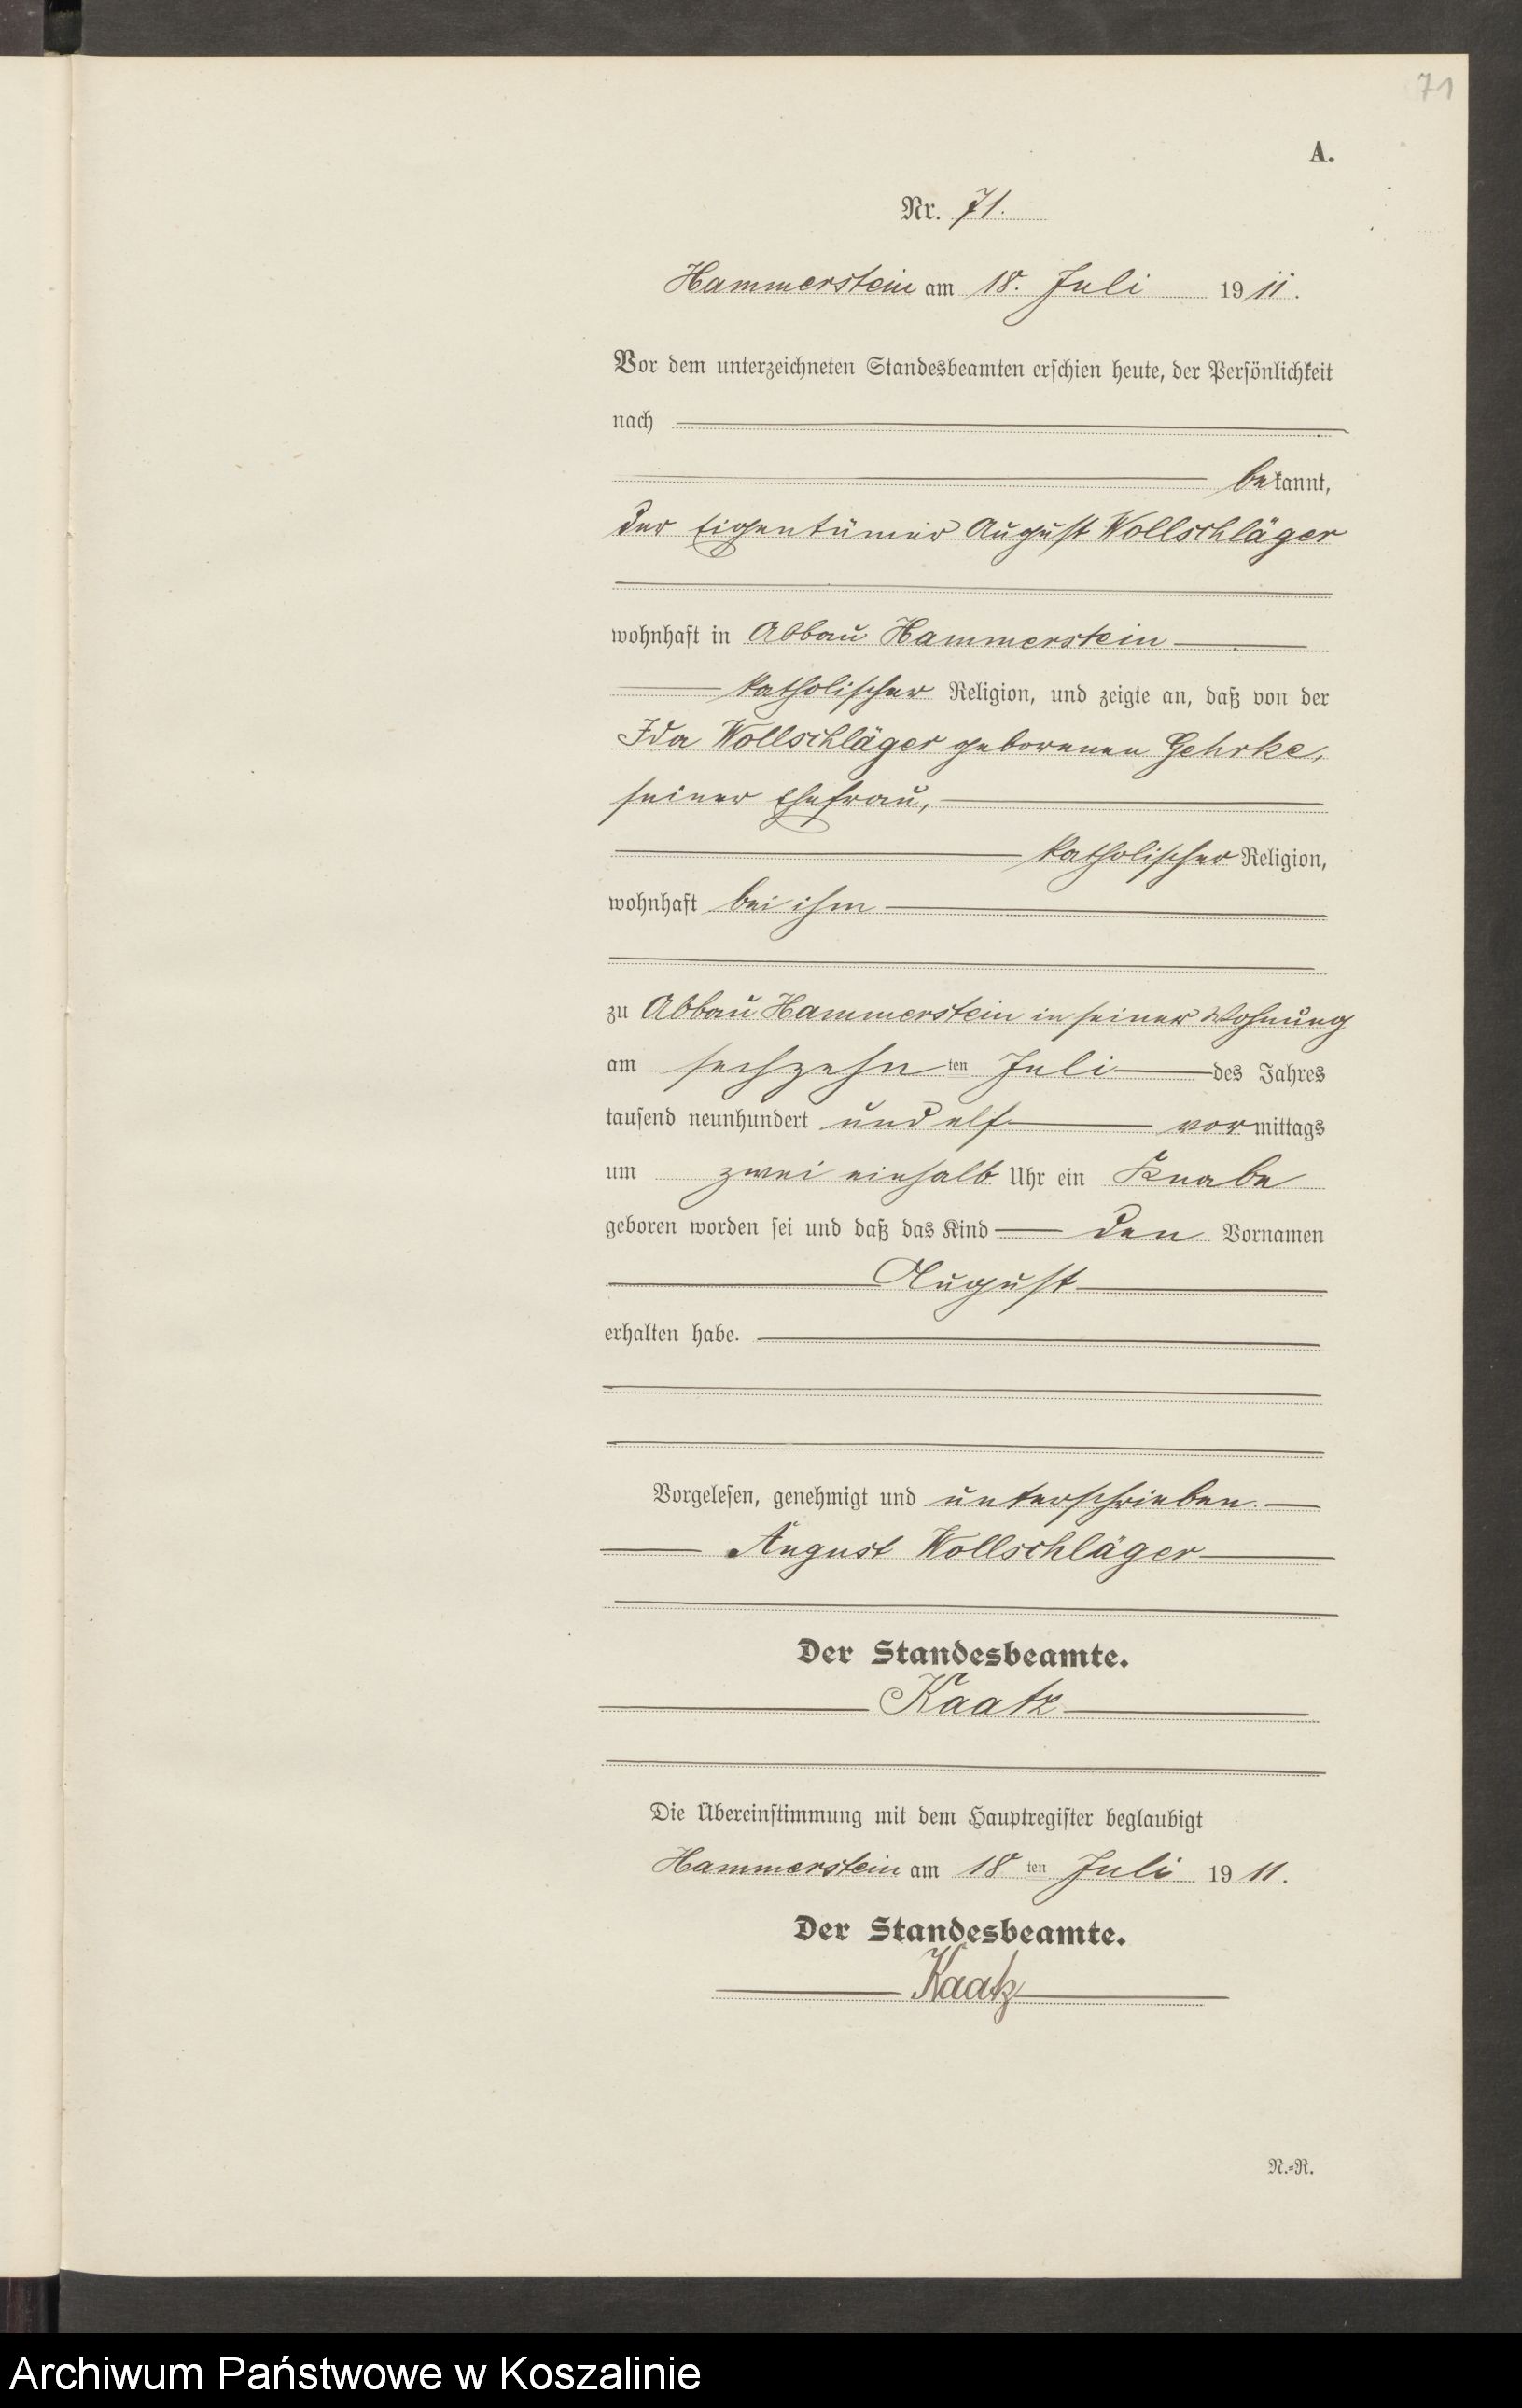 71
A.
Nr. 71.
Hammerstein am 18. Juli 1911.
Vor dem unterzeichneten Standesbeamten erschien heute, der Persönlichkeit
nach
bekannt,
der Eigentümer August Wollschläger
wohnhaft in Abbau Hammerstein
katholischer Religion, und zeigte an, daß von der
Ida Wollschläger geborenen Gehrke,
seiner Ehefrau,
katholischer Religion,
wohnhaft bei ihm
zu Abbau Hammerstein in seiner Wohnung
am sechzehn ten Juli des Jahres
tausend neunhundert und elf vormittags
um zwei einhalb Uhr ein Knabe
geboren worden sei und daß das Kind den Vornamen
August
erhalten habe.
Vorgelesen, genehmigt und unterschrieben.
August Wollschläger
Der Standesbeamte.
Kaatz
Die Übereinstimmung mit dem Hauptregister beglaubigt
Hammerstein am 18 ten Juli 1911.
Der Standesbeamte.
Kaatz
N.=R.
Archiwum Państwowe w Koszalinie